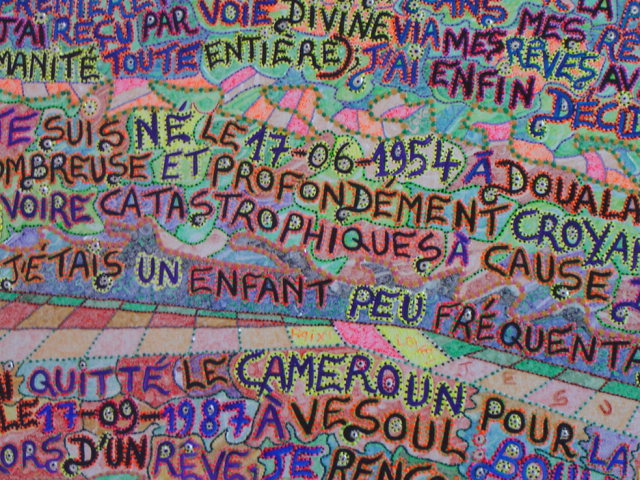 J'AI REÇU PAR VOIE DIVINE VIA MES MES
MANITÉ TOUTE ENTIÈRE), J'AI ENFIN
SUIS NÉ LE 17-06-1954 À DOUALA
OMBREUSE ET PROFONDÉMENT CROYAN
VOIRE CATASTROPHIQUES À CAUSE
J'ÉTAIS UN ENFANT PEU FRÉQUENTA
QUITTÉ LE CAMEROUN POUR LA
LE 17-09-1987 À VESOUL
D'UN RÊVE, JE
JESU